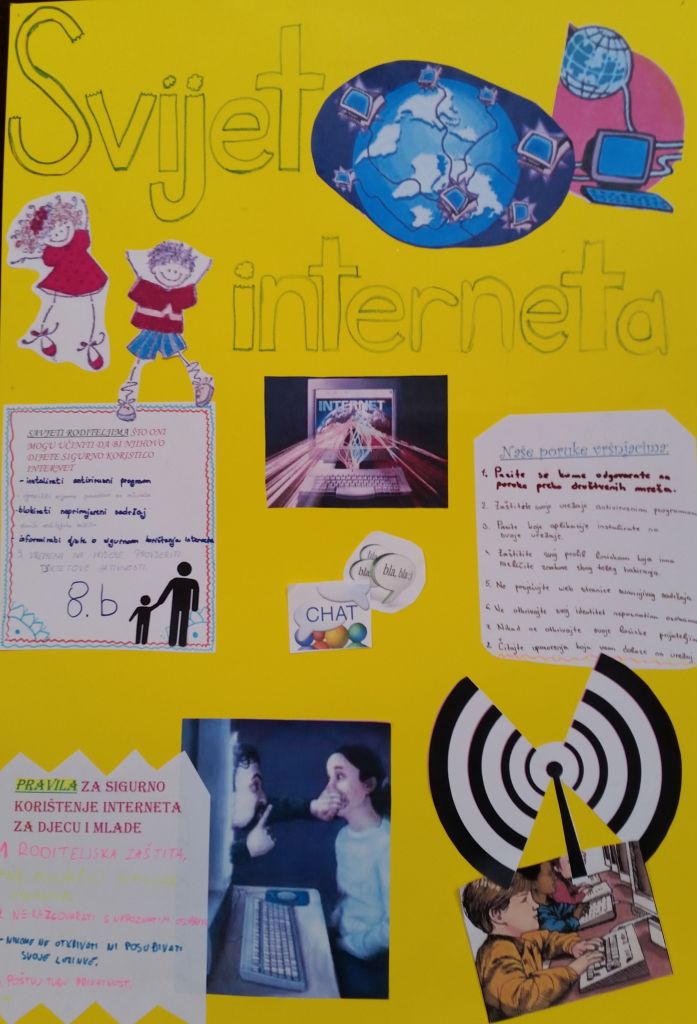 Svijet
interneta
INTERNET
SAVJETI RODITELJIMA ŠTO ONI
MOGU UČINITI DA BI NJIHOVO
DIJETE SIGURNO KORISTILO
INTERNET
- instalirati antivirusni program
- blokirati neprimjereni sadržaj
- informirati dijete o sigurnom korištenju interneta
S VREMENA NA VRIJEME PROVJERITI
DJETETOVE AKTIVNOSTI
8.b
bla
bla, bla
CHAT
Naše poruke vršnjacima:
1. Pazite se kome odgovarate na
poruke preko društvenih mreža.
2. Zaštitite svoje uređaje antivirusnim programom
3. Pazite koje aplikacije instalirate na
svoje uređaje.
4. Zaštitite svoj profil lozinkom koja ima
različite znakove zbog težeg hakiranja.
5. Ne posjećujte web stranice sumnjivog sadržaja
6. Ne otkrivajte svoj identitet nepoznatim osobama
7. Nikad ne otkrivajte svoje lozinke prijateljima
8. Čitajte upozorenja koja vam dolaze na uređaj
PRAVILA ZA SIGURNO
KORIŠTENJE INTERNETA
ZA DJECU I MLADE
1 RODITELJSKA ZAŠTITA,
2. NE RAZGOVARATI S NEPOZNATIM OSOBAMA
- NIKOME NE OTKRIVATI NI POSUĐIVATI
SVOJE LOZINKE.
POŠTUJ TUĐU PRIVATNOST.